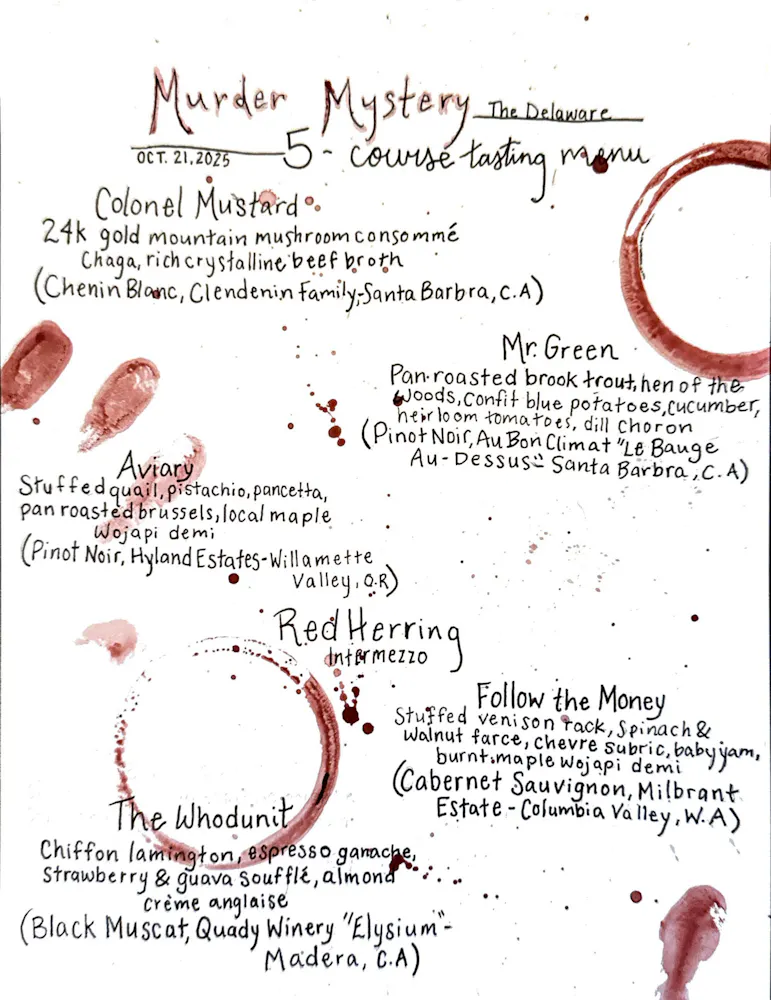 Murder Mystery The Delaware
OCT. 21, 2025 5 - course tasting menu
Colonel Mustard
24k gold mountain mushroom consommé
Chaga, rich crystalline beef broth
(Chenin Blanc, Clendenin Family,-Santa Barbra, C.A)
Mr. Green
Pan-roasted brook trout, hen of the
woods, confit blue potatoes, cucumber,
heirloom tomatoes, dill choron
(Pinot Noir, Au Bon Climat "Le Bauge
Au-Dessus"- Santa Barbra, C.A)
Aviary
Stuffed quail, pistachio, pancetta,
pan roasted brussels, local maple
wojapi demi
(Pinot Noir, Hyland Estates-Willamette
Valley, O.R)
Red Herring
Intermezzo
Follow the Money
Stuffed venison rack, spinach &
walnut farce, chevre subric, baby yam,
burnt maple wojapi demi
(Cabernet Sauvignon, Milbrant
Estate - Columbia Valley, W.A)
The Whodunit
Chiffon lamington, espresso ganache,
Strawberry & guava soufflé, almond
crème anglaise
(Black Muscat, Quady Winery "Elysium"-
Madera, C.A)